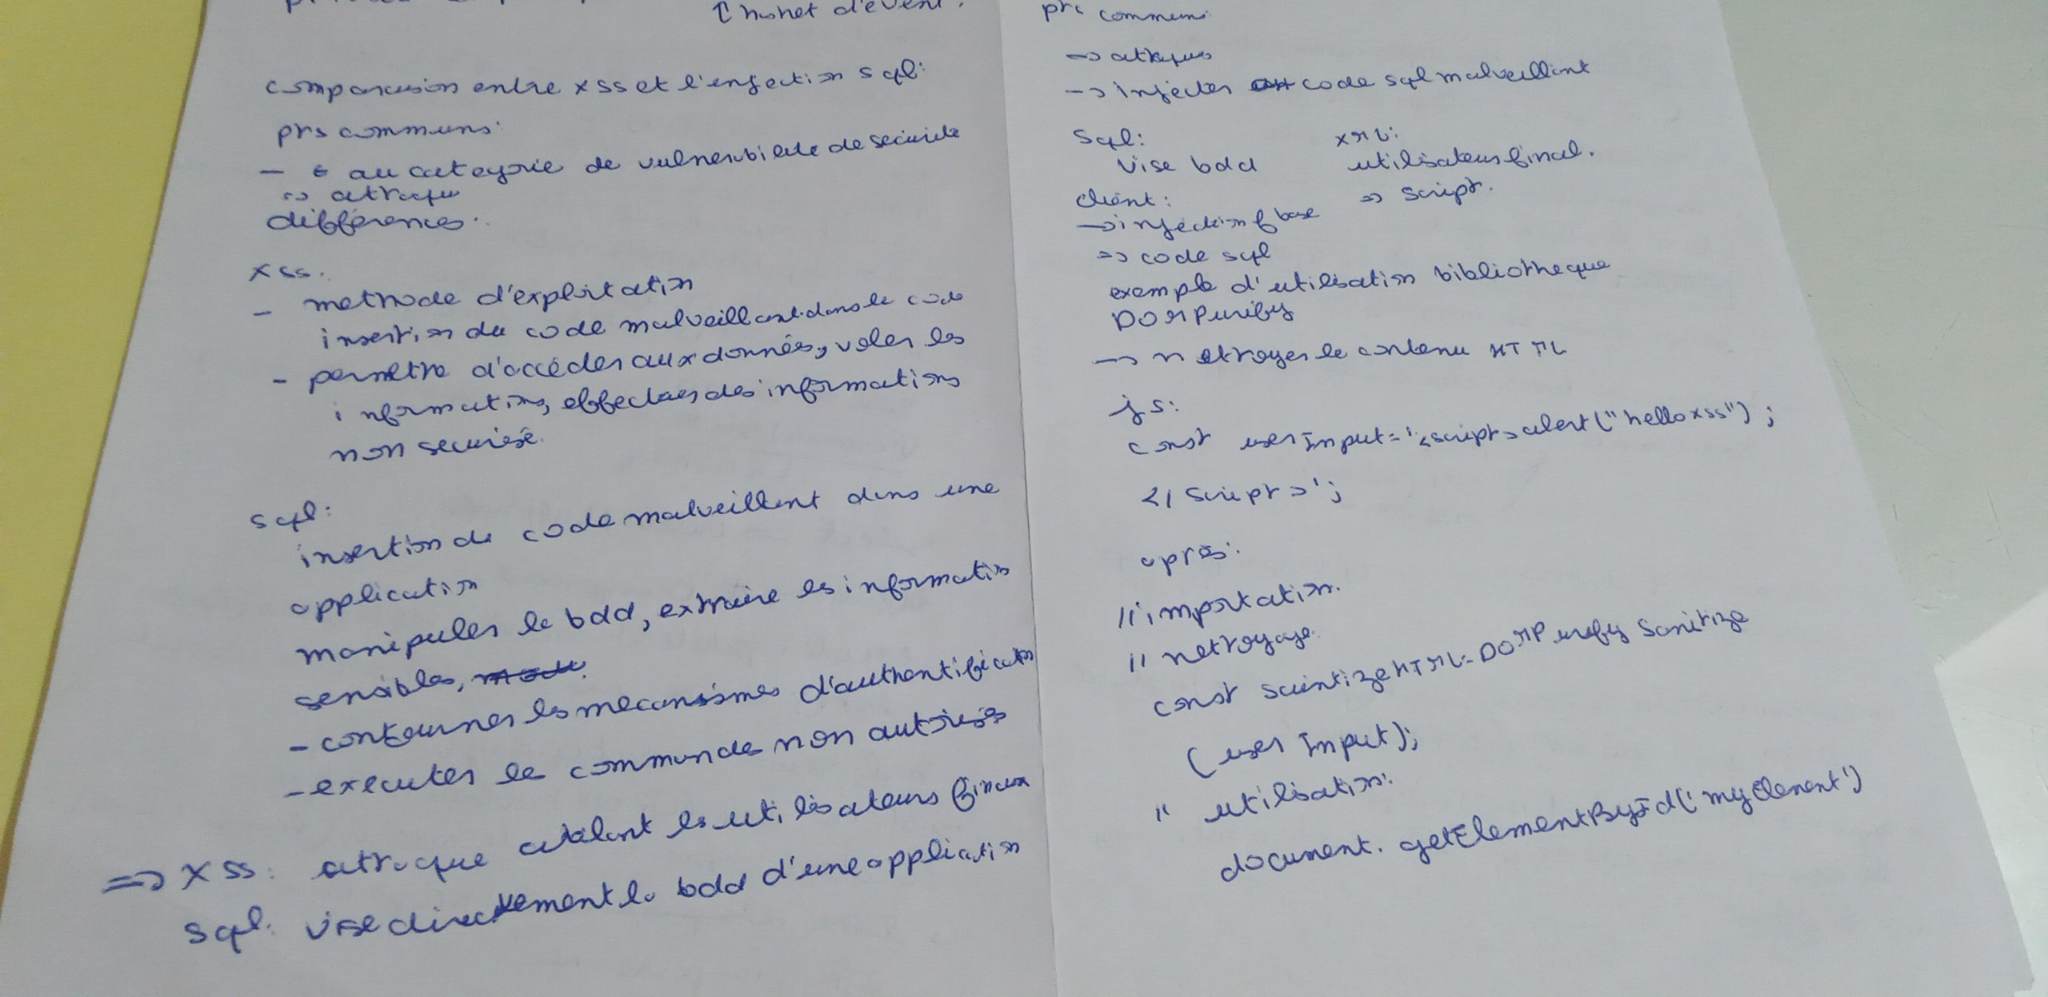 comparaison entre xss et l'injection sql:
pts communs:
- € au categorie de vulnerbilité de securite
=> attaque
différences:
xss:
- methode d'exploitation
insertion du code malveillant dans le code
- permetre d'accéder aux données, voler les
informations, effectuer des informations
non securisé.
sql:
insertion de code malveillent dans une
application
manipuler la bdd, extraire les information
sensibles,
- contourner les mecanismes d'authentification
- executer le commande non autorisés
=> XSS: attaque les utilisateurs finaux
sql: vise directement la bdd d'une application
pts communs
-> attaques
-> injecter code sql malveillint
Sql: xML:
Vise bdd utilisateur final.
client: => script.
-> injection base
=> code sql
exemple d'utilisation bibliotheque
DOMPurify
-> nettoyer le contenu HTML
js:
const userInput='<script>alert("hello xss");
</script>';
après:
//importation.
// nettoyage.
const saintizeHTML=DOMPurify sanitize
(user Input);
" utilisation:
document.getElementById('myElement')